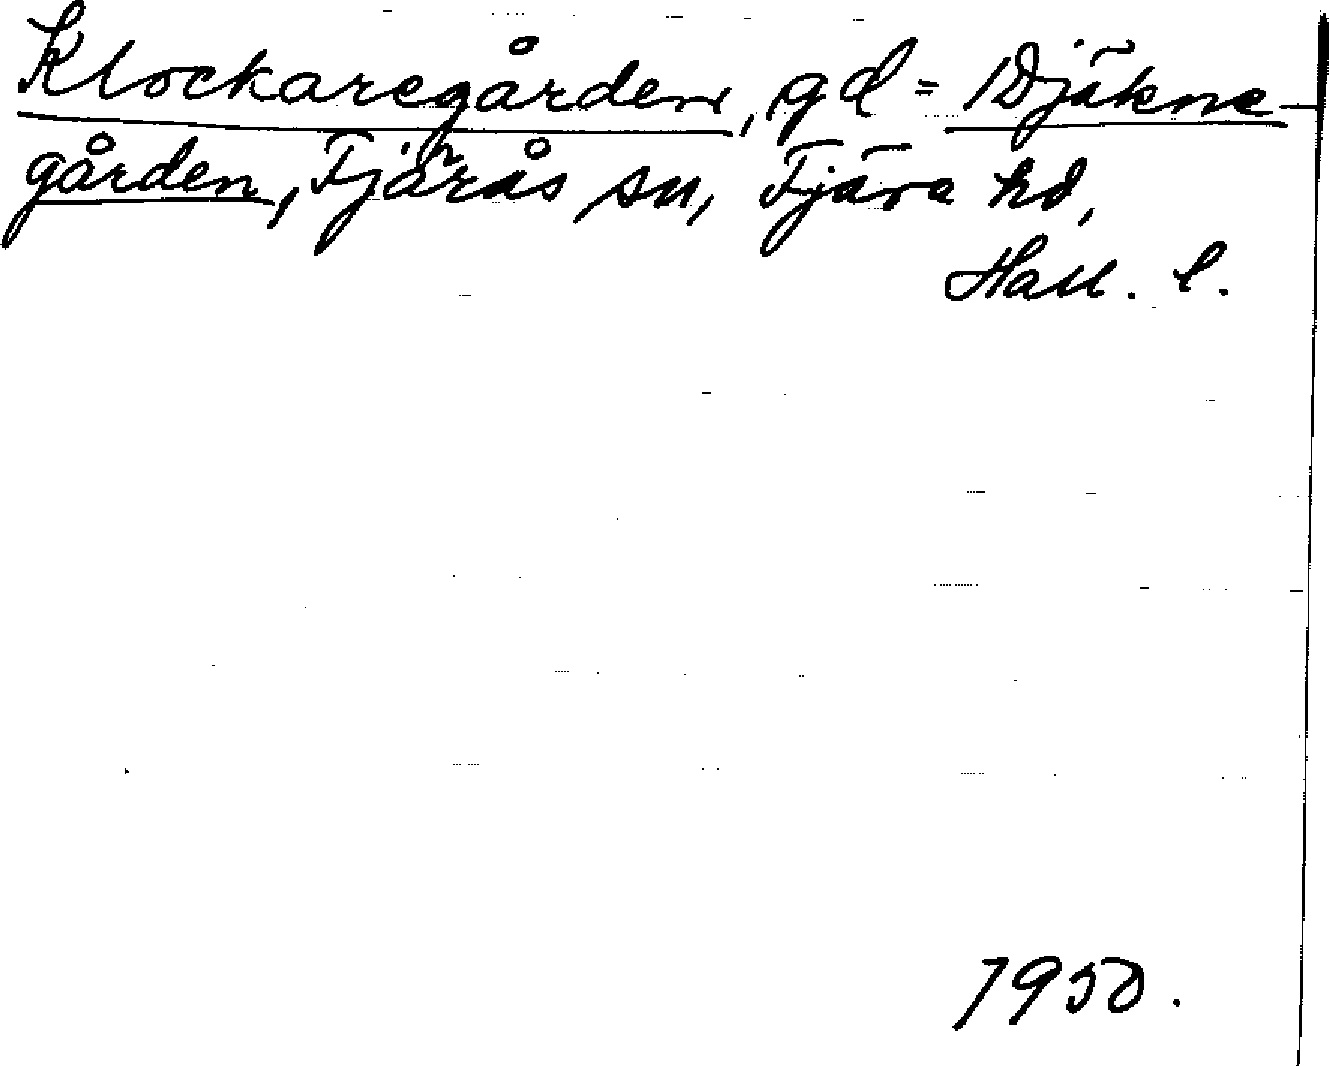 Klockaregården, gd = Djäkne-
gården, Fjärås sn, Fjäre hd,
Hall. l.
1950.